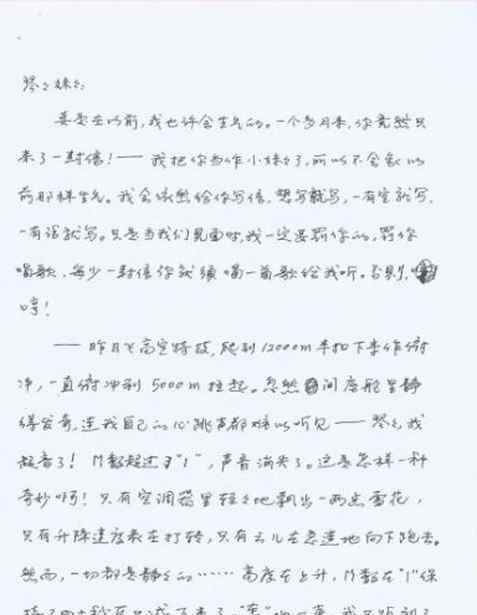 琴琴妹妹:
要是在以前,我也许会生气的。一个多月来,你竟然只
来了一封信!——我把你当作小妹妹了,所以不会象以
前那样生气。我会依然给你写信,想写就写,一有空就写,
一有话就写。只是当我们见面时,我一定要罚你的,罚你
唱歌,每少一封信你就须唱一首歌给我听。否则,
哼!
——昨日飞高空特技,爬到12000m 半扣下来作俯
冲,一直俯冲到 5000m 拉起。忽然间座舱里静
得发奇,连我自己的心跳声都难以听见——琴琴,我
超音了!M数超过了"1",声音消失了。这是怎样一种
奇妙啊!只有空调器里轻轻地飘出一两朵雪花,
只有升降速度表在打转,只有云儿在急速地向下跑去。
然而,一切都是静静的……高度在上升,M数在"1"保